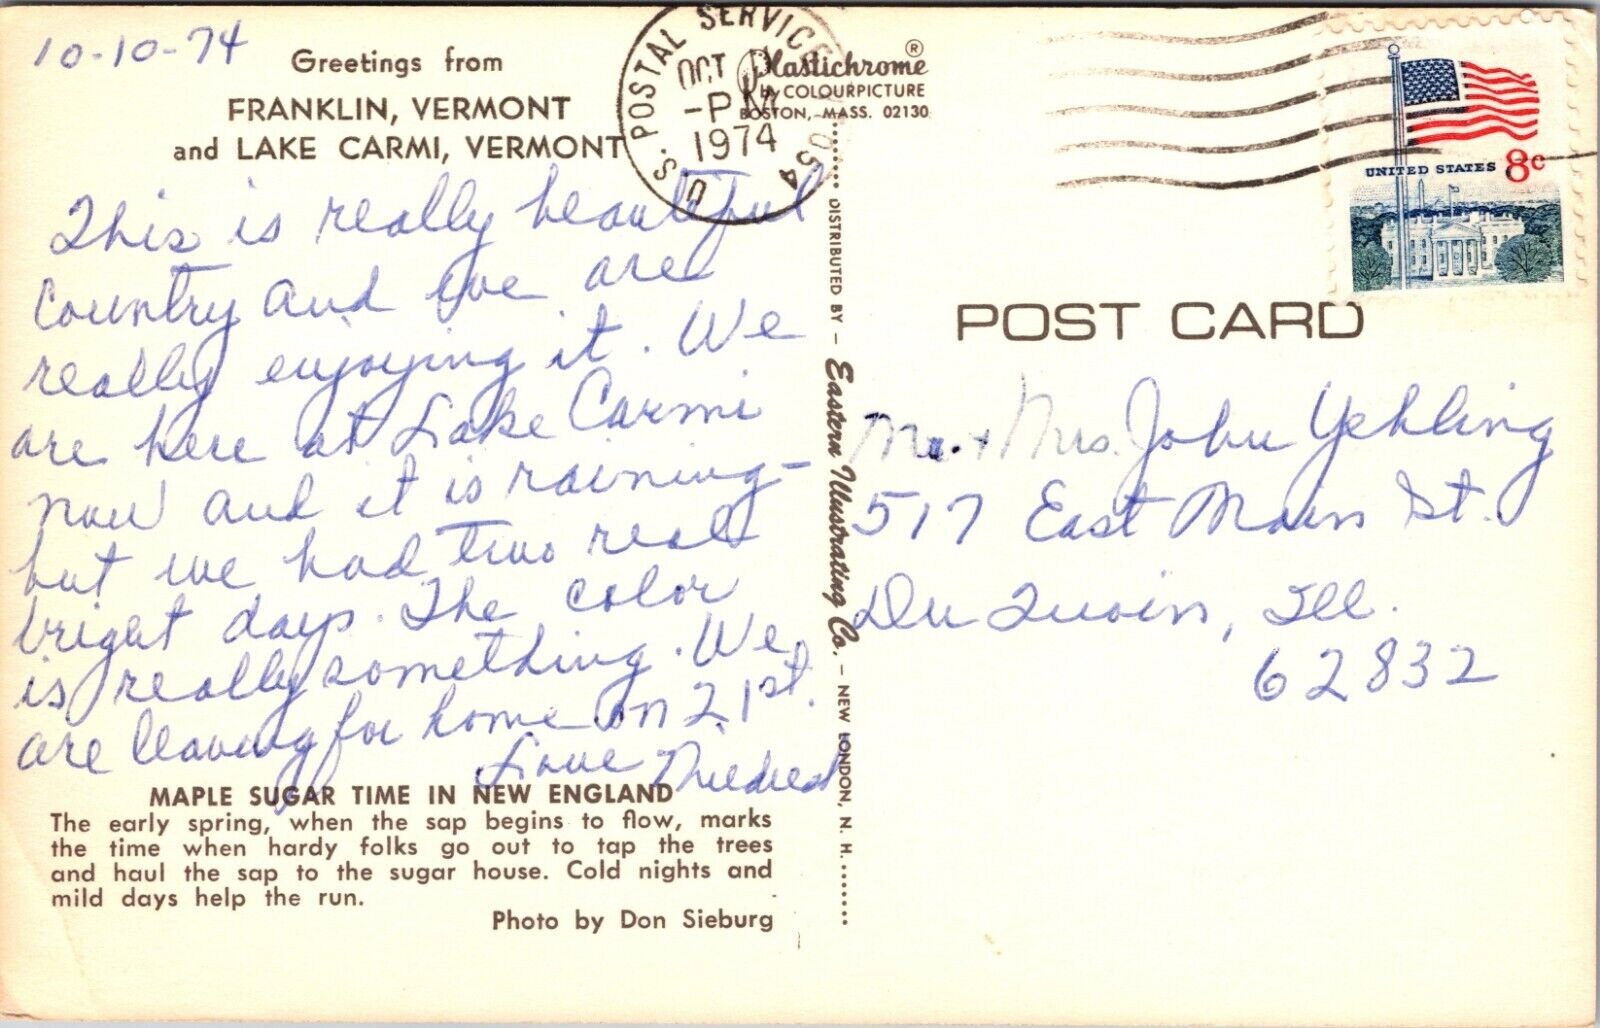 10-10-74
Greetings from
FRANKLIN, VERMONT
and LAKE CARMI, VERMONT
This is really beautiful
Country and we are
really enjoying it. We
are here at Lake Carmi
now and it is raining -
but we had two real
bright days. The color
is really something. We
are leaving for home on 21st.
Love Mildred
MAPLE SUGAR TIME IN NEW ENGLAND
The early spring, when the sap begins to flow, marks
the time when hardy folks go out to tap the trees
and haul the sap to the sugar house. Cold nights and
mild days help the run.
Photo by Don Sieburg
U.S. POSTAL SERVICE 054
OCT
-PM
1974
Plastichrome ®
by COLOURPICTURE
BOSTON, MASS. 02130
DISTRIBUTED BY - Eastern Illustrating Co. - NEW LONDON, N. H.
UNITED STATES 8c
POST CARD
Mr. + Mrs. John Yehling
517 East Main St.
Du Quoin, Ill.
62832